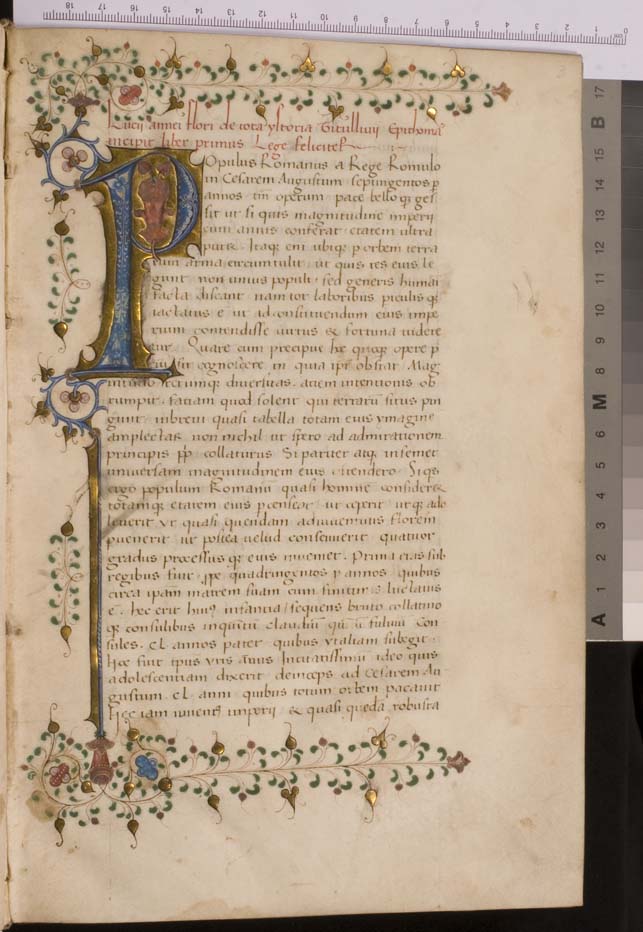 Lucij annei flori de tota ystoria Titulliuij Epithoma
incipit liber primus Lege feliciter
POpulus Romanus a Rege Romulo
in Cesarem Augustum septingentos p
annos tm operum pace bello qȝ ges
sit ut si quis magnitudine imperij
cum annis conferat etatem ultra
putet. Itaqȝ
arma circumtulit ut quis res eius le
gunt non unius populi sed generis humani
facta discant nam tot laboribus piculis qȝ
iactatus e ut ad constituendum eius impe
rium contendisse uirtus & fortuna uidere
tur. Quare cum precipue hec quoqȝ opere p
sit cognoscere in quia ipa obstat Mag
nitudo rerumqȝ diuersitas aciem intentionis ob
rumpit. faciam quod solent qui terrarum situs pin
gunt inbreui quasi tabella totam eius ymagine
amplectar non nichil ut spero ad admirationem
principis pp collaturus Si pariter atqȝ insemet
uniuersam magnitudinem eius ostendero Siqs
ergo populum Romanum quasi homine consideret
totamqȝ etatem eius pcenseat ut ceperit utqȝ ado
leuerit Vt quasi quendam adiuuentutis florem
puenerit ut postea uelud consenuerit quatuor
gradus processus qȝ eius inueniet. Prima etas sub
regibus fuit ppe quadringentos p annos quibus
circa ipam matrem suam cum finitimis luctatus
e. Hec erit huiꝰ infantia sequens bruto collatino
qȝ consulibus
sules. cl annos patet quibus ytaliam subegit.
Hoc fuit tpus uris Incitatissimu ideo quis
adolescentiam dixerit deinceps ad Cesarem Au
gustum cl anni quibus totum orbem pacauit
Hec iam iuuentꝰ imperij & quasi queda robusta
A 1 2 3 4 5 6 M 8 9 10 11 12 13 14 15 B 17
0 1 2 3 4 5 6 7 8 9 10 11 12 13 14 15 16 17 18